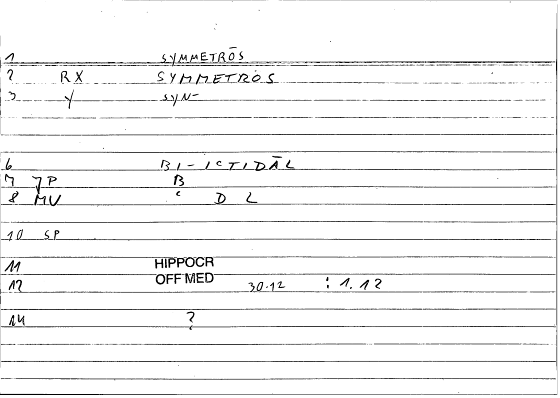 1 SYMMETRŌS
2 RX SYMMETROS
3 Y SYN-
6 BI-ICTIDĀL
7 7P B
8 MV C D L
10 SP
11 HIPPOCR
12 OFF MED 30.12 : 1.12
14 ?